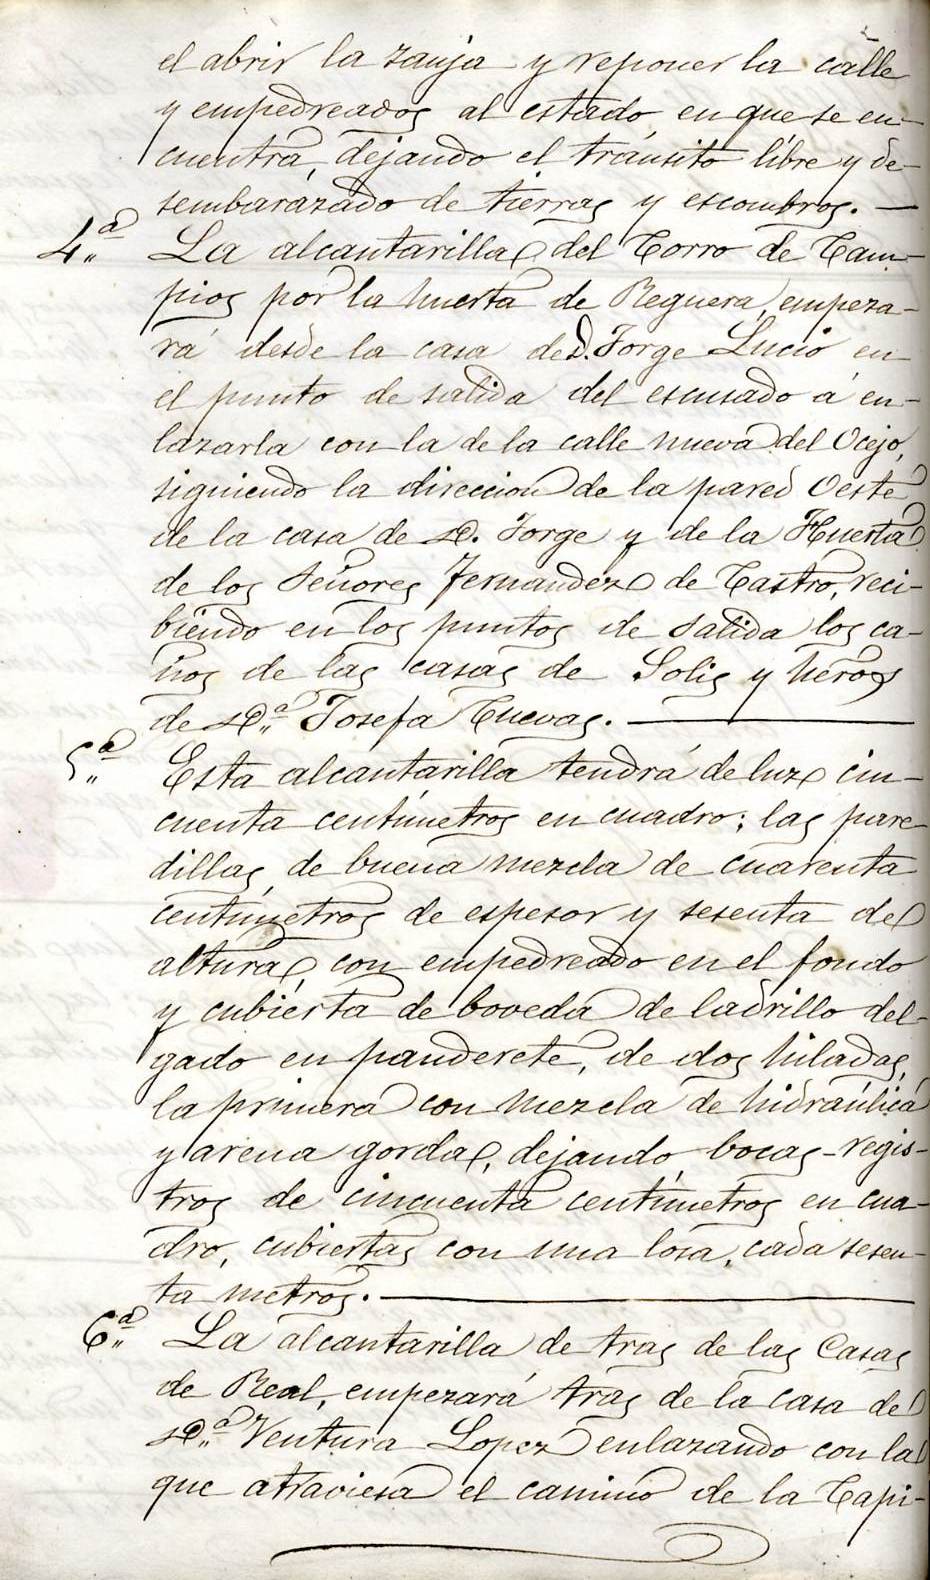 el abrir la zanja y reponer la calle
y empedreados al estado en que se en-
cuentra, dejando el tránsito libre y de-
sembarazado de tierras y escombros. —
4.ª La alcantarilla del Corro de Cam-
pios por la huerta de Reguera, empeza-
rá desde la casa de D. Jorge Lucio en
el punto de salida del escusado á en-
lazarla con la de la calle nueva del Ocejo,
siguiendo la direccion de la pared Oeste
de la casa de D. Jorge y de la Huerta
de los Señores Fernandez de Castro, reci-
biendo en los puntos de salida los ca-
ños de las casas de Solis y heros
de D.ª Josefa Cuevas. —
5.ª Esta alcantarilla tendrá de luz cin-
cuenta centímetros en cuadro; las pare-
dillas, de buena mezcla de cuarenta
centímetros de espesor y sesenta de
altura, con empedreado en el fondo
y cubierta de boveda de ladrillo del-
gado en panderete, de dos hiladas,
la primera con mezcla de hidráulica
y arena gorda, dejando bocas-regis-
tros de cincuenta centímetros en cua-
dro, cubiertas con una losa, cada sesen-
ta metros. —
6.ª La alcantarilla de tras de las Casas
de Real, empezará tras de la casa de
D.ª Ventura Lopez enlazando con la
que atraviesa el camino de la Capi-